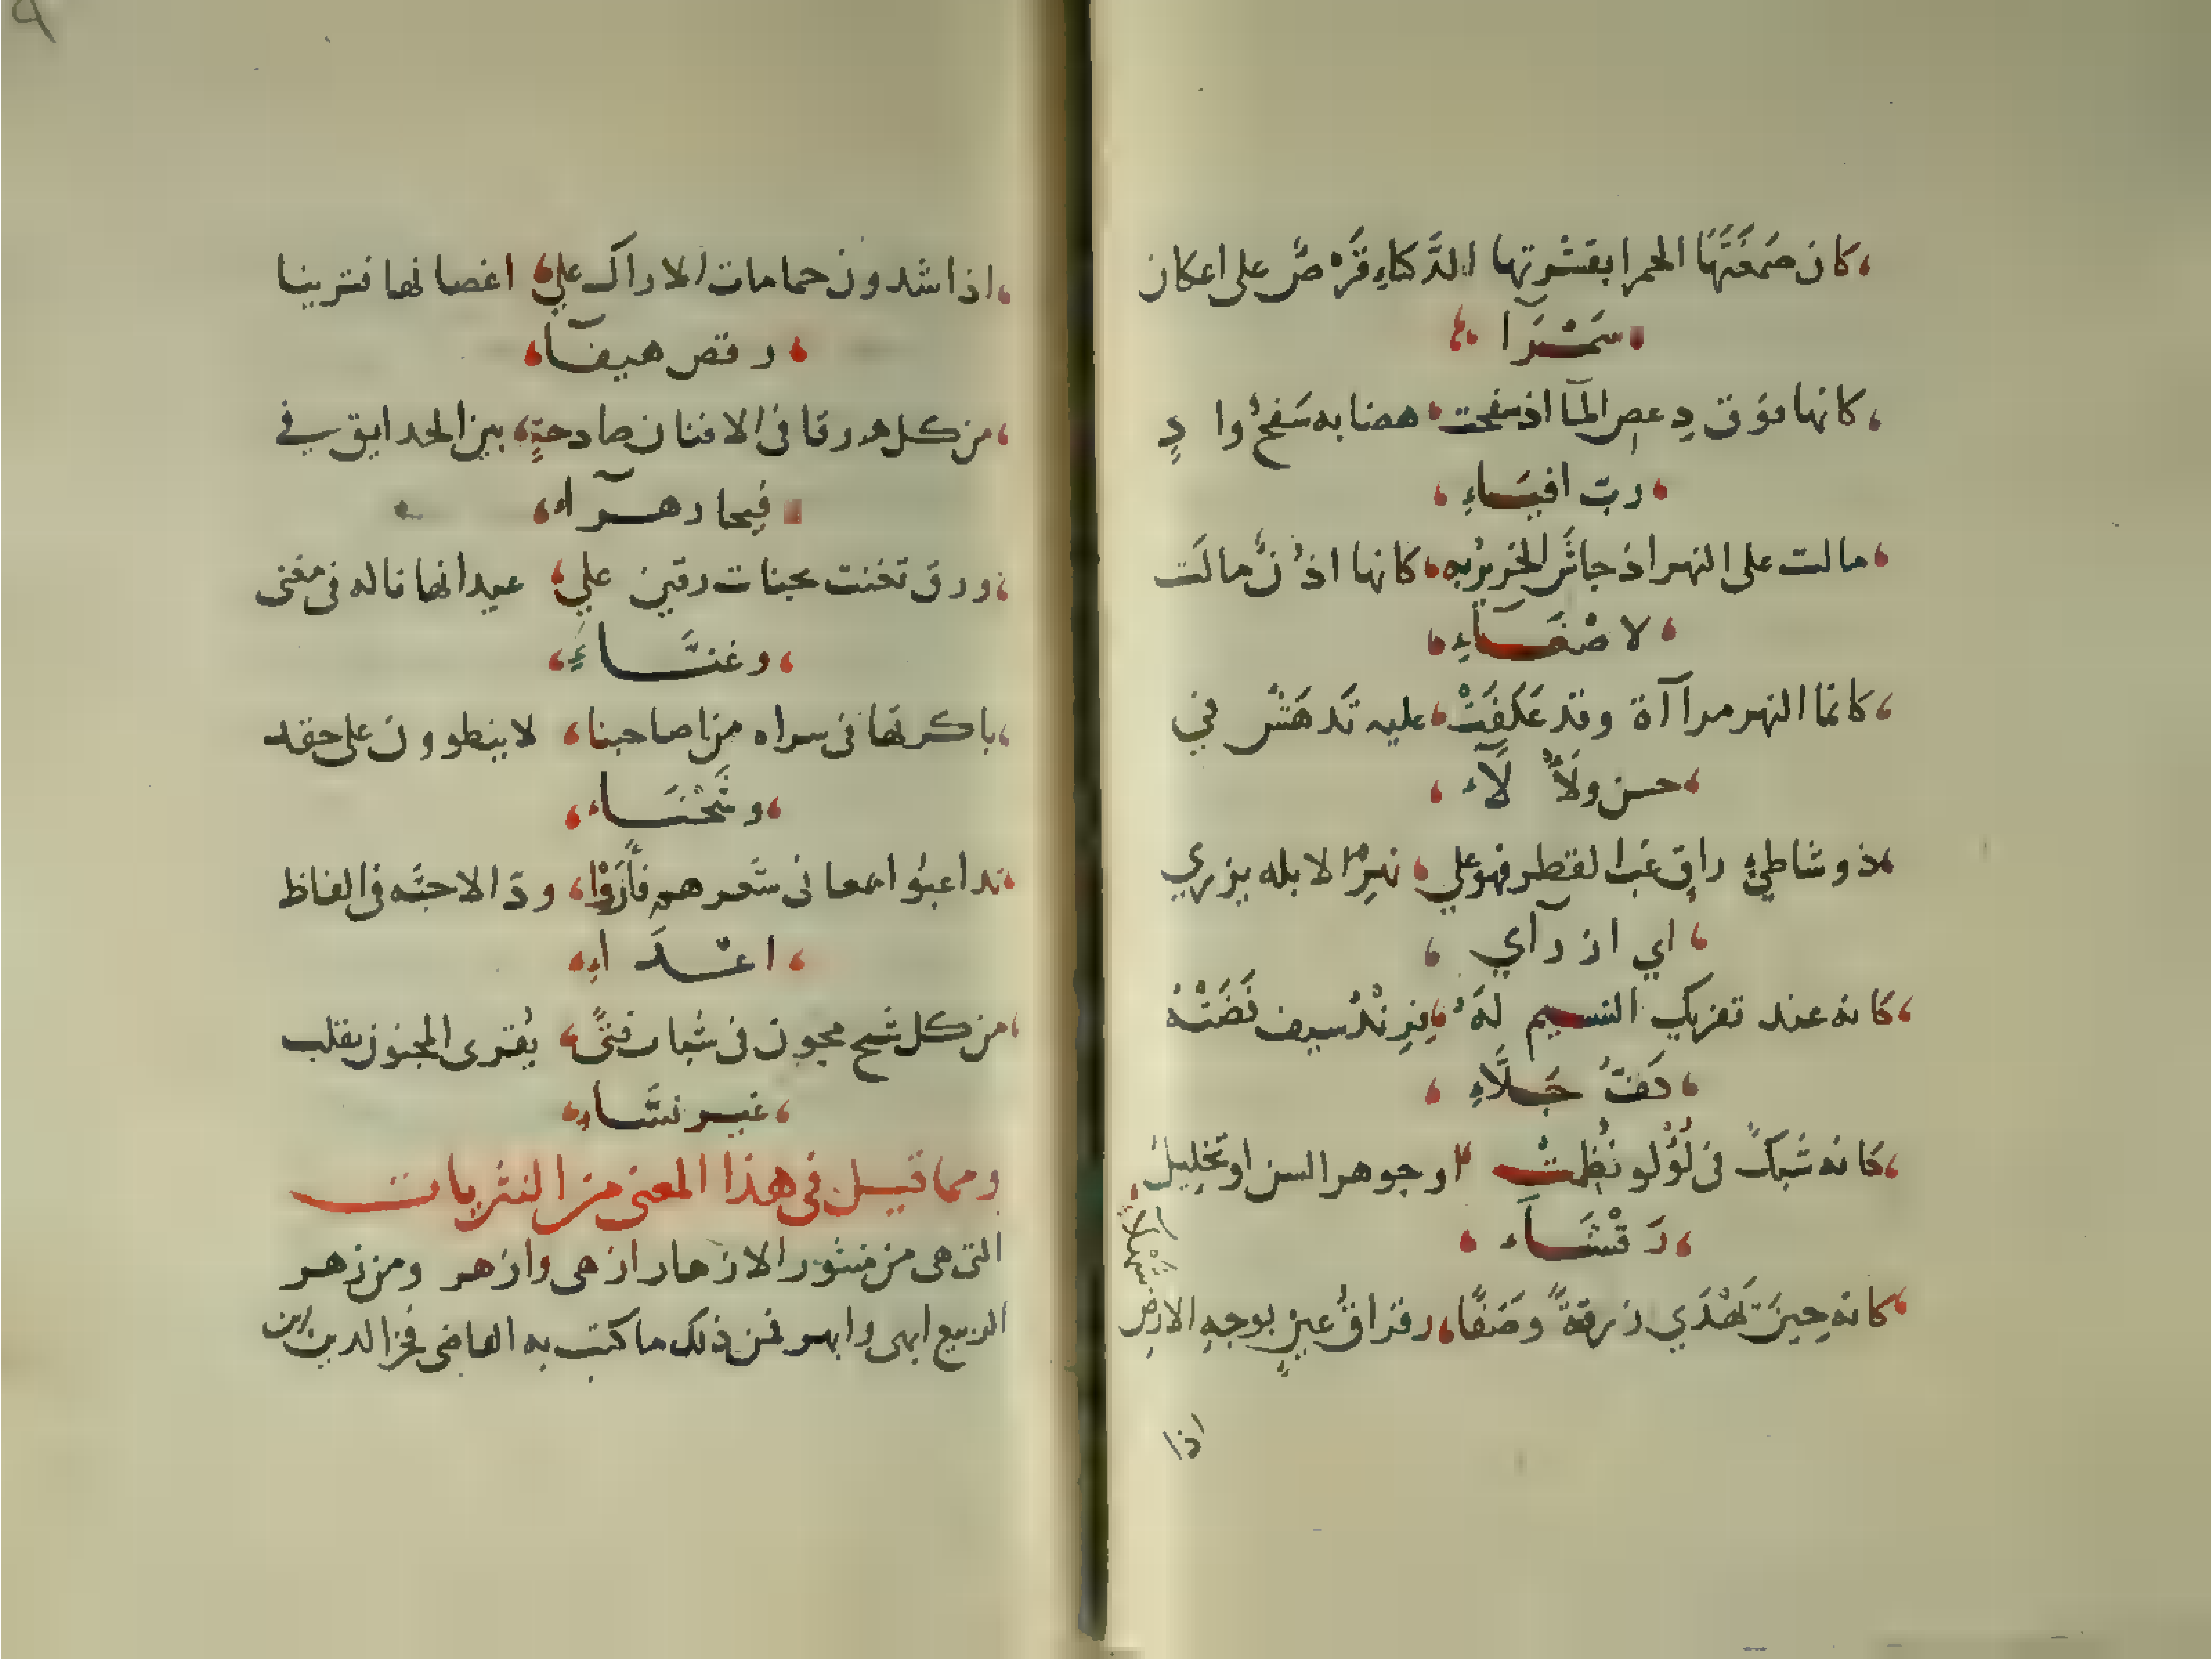 كان صمغَتَّهَا الحمرا بقشرتها الدَّكناءِ قَرْصٌ على اعكان
سَمْرَآ
كانها فوق دِعصِ المآ اذ سفحت هضابه سَفحُ وا دٍ
ربّ افيَاءِ
مالت على النهر اذ جاشَ الخرِيرُ به كانها اذُنٌ مالَت
لاصْغَاءِ
كانما النهر مرآآة وقد عَكَفَتْ عليه تَدهَشُ في
حسن ولَألَآء
ذو شاطئٍ راقٍ غبّ القطر فهو علي نهر الابله يزري
اي ازرآي
كانه عند تفريك النسيم لهُ فِرِنْدُ سيف نَضَتْهُ
كفّ جَلَّاءِ
كانه شَبَكٌ فى لُؤْلُو نُظِمتْ او جوهر السن او تخليلُ
رَقْشَاء
كانه حِينَ يَهْدَي زرقةً وصَفًا رقراقُ عينٍ بوجهِ الارضِ
شهْلآءِ
اذا
٩
اذا شدون حمامات الاراك علي اغصانها فترينا
رقص هيفآ
من كل ورقا فى الافنان صادحةٍ بين الحدايق في
فيحا زهرآء
ورق تغنت بجنات رقين علي عيدانها ناله فى مغنى
وغنَّاءِ
باكرتها فى سراه من اصاحبنا لا ينطوون على حقد
وشَّحْنَاء
تداعبُوا بمعانى شعرهم فأرَوْا ودّ الاحبَّه فى الفاظ
اعْدَاءِ
من كل شيخ مجون فى شباب فتىً يُقرى المجنون بقلب
غير نسَّاءِ
ومما قيل فى هذا المعنى من النثريات
التى هى من منثور الازهار ازهى وازهر ومن زهر
الربيع ابهى وابهر فمن ذلك ما كتب به القاضى فخر الدين ابن